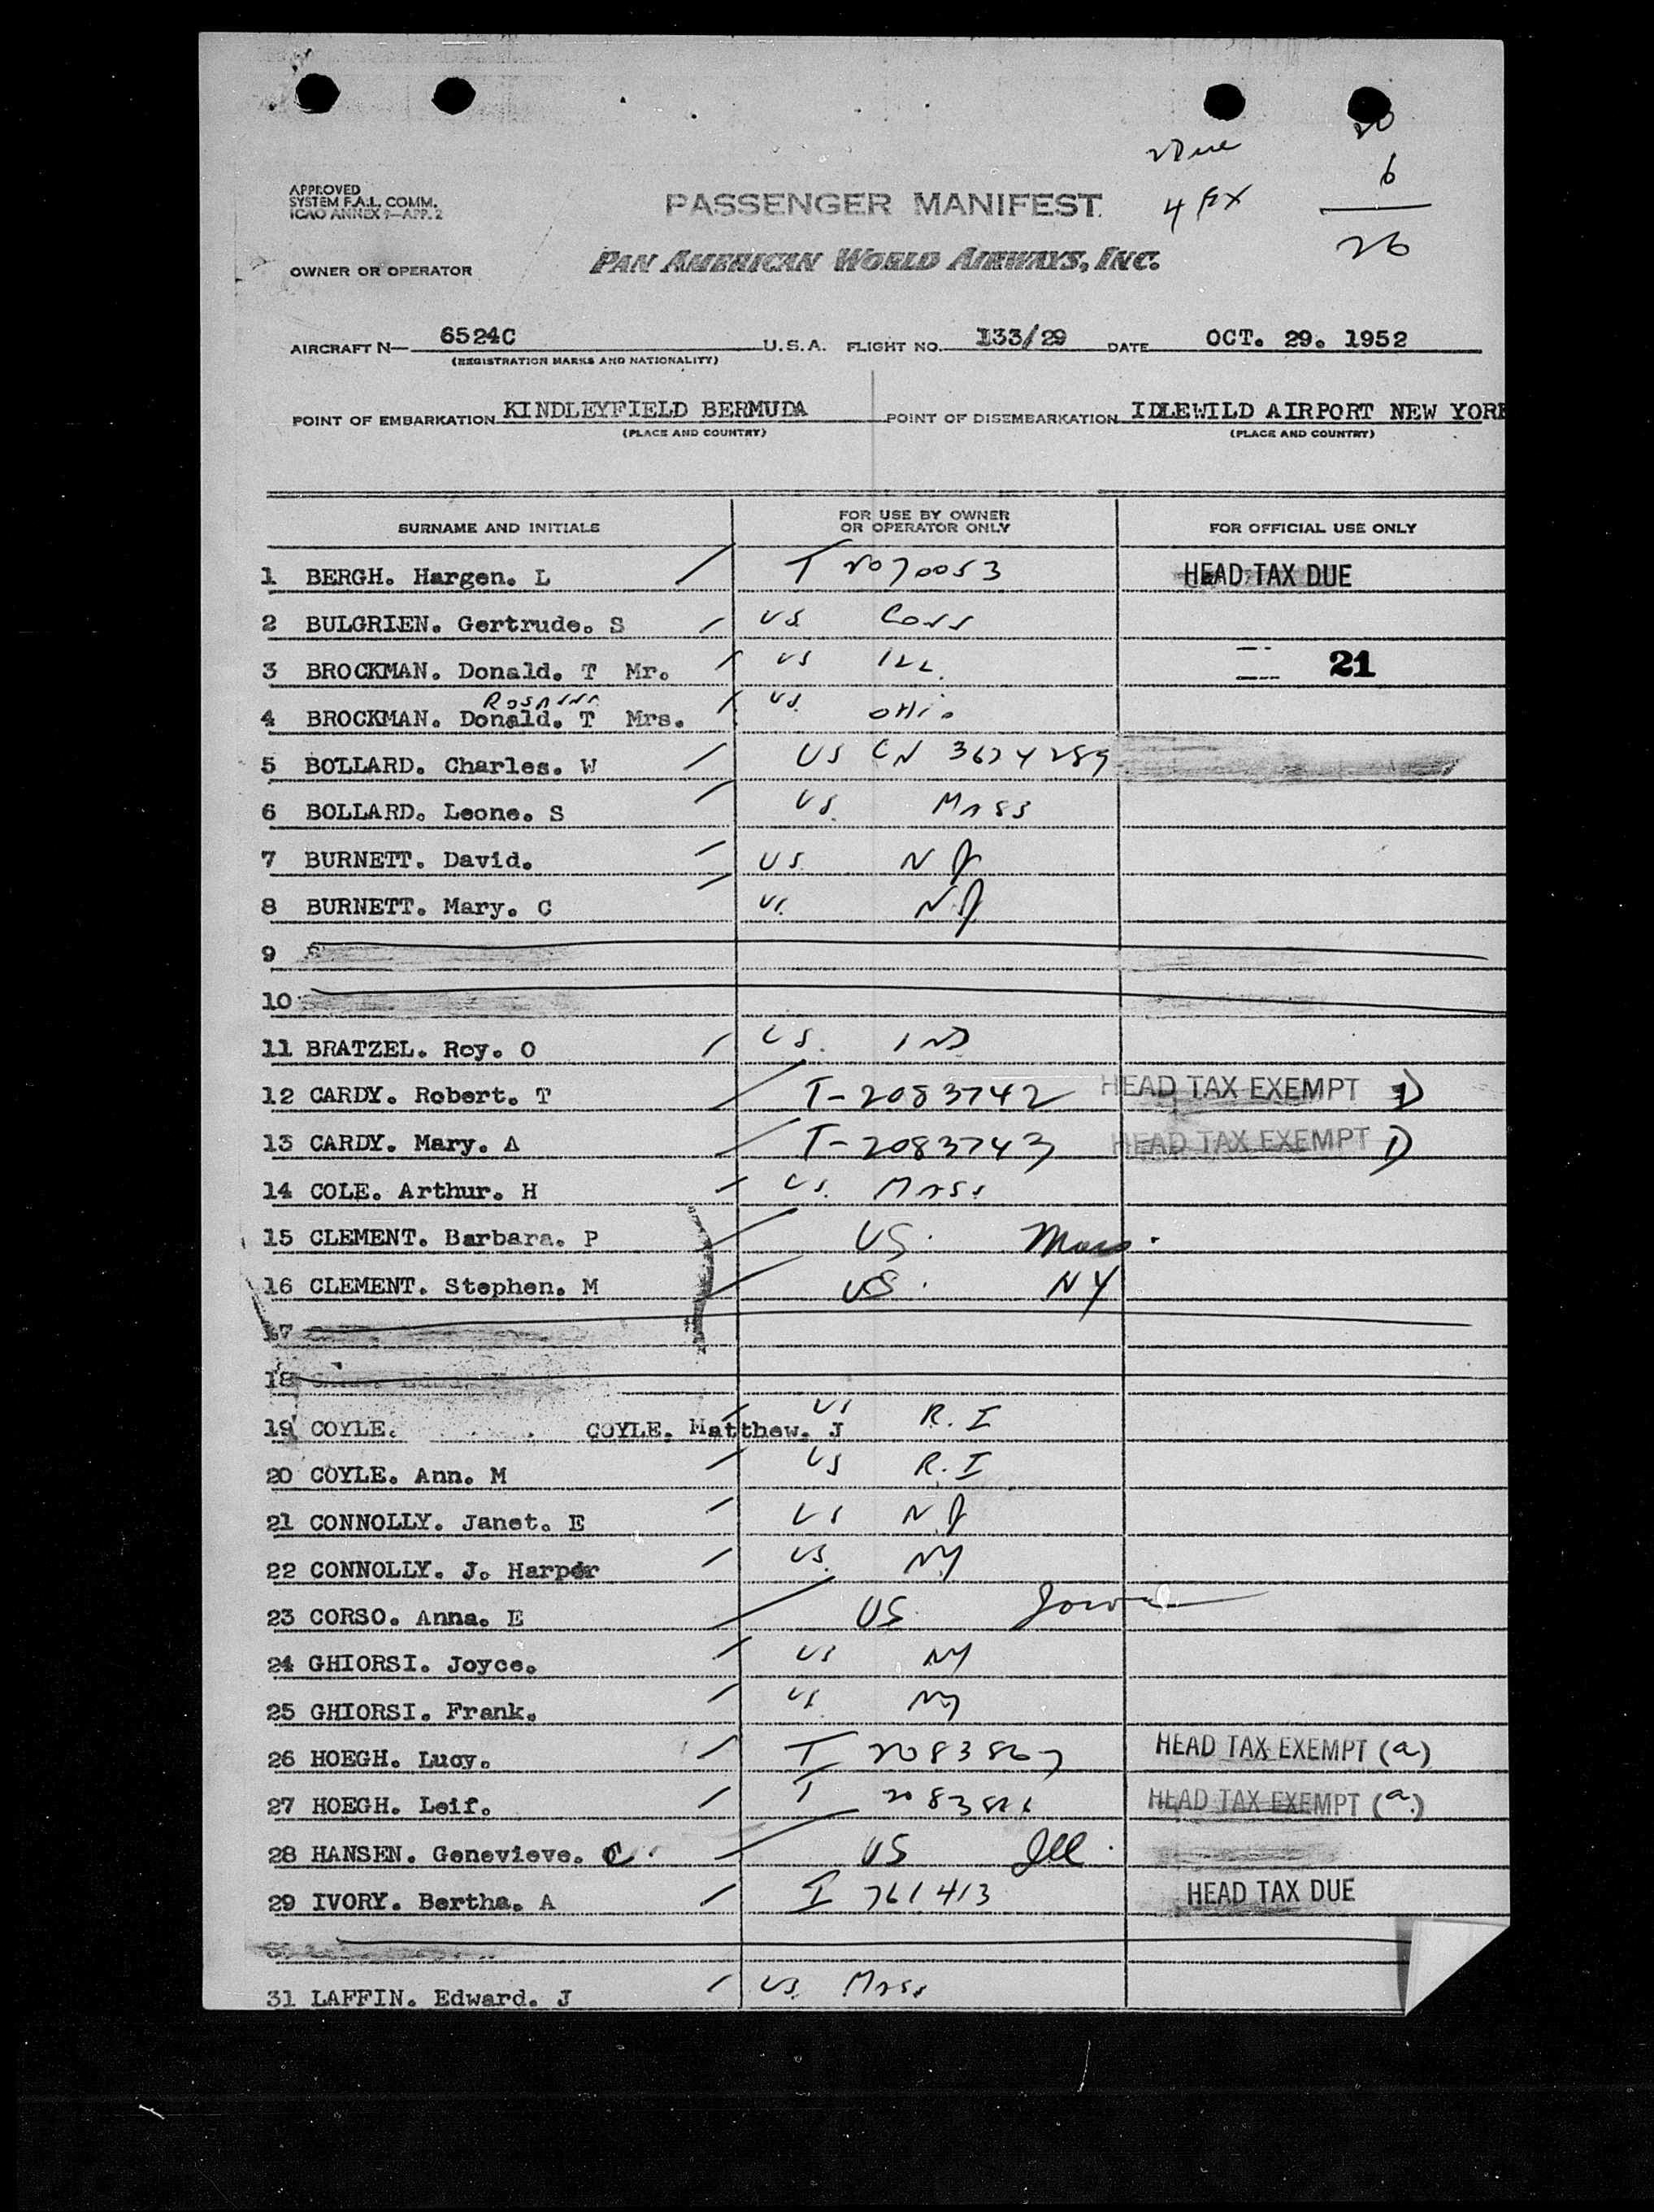 2 Due 20
APPROVED
SYSTEM F.A.L. COMM.
ICAO ANNEX 9—APP. 2
PASSENGER MANIFEST
4 EX 6
26
OWNER OR OPERATOR PAN AMERICAN WORLD AIRWAYS, INC.
AIRCRAFT N— 6524C U.S.A. FLIGHT NO. 133/29 DATE OCT. 29. 1952
(REGISTRATION MARKS AND NATIONALITY)
POINT OF EMBARKATION KINDLEYFIELD BERMUDA POINT OF DISEMBARKATION IDLEWILD AIRPORT NEW YORK
(PLACE AND COUNTRY) (PLACE AND COUNTRY)
SURNAME AND INITIALS FOR USE BY OWNER OR OPERATOR ONLY FOR OFFICIAL USE ONLY
1 BERGH. Hargen. L T 2070053 HEAD TAX DUE
2 BULGRIEN. Gertrude. S US
3 BROCKMAN. Donald. T Mr. US ILL. 21
4 BROCKMAN. Donald. T Mrs. US. OHIO
5 BOLLARD. Charles. W US CN
6 BOLLARD. Leone. S US. MASS
7 BURNETT. David. US. NJ
8 BURNETT. Mary. C US. NJ
9
10
11 BRATZEL. Roy. O US. IND
12 CARDY. Robert. T T-2083742 HEAD TAX EXEMPT 1)
13 CARDY. Mary. A T-2083743 HEAD TAX EXEMPT 1)
14 COLE. Arthur. H US. MASS.
15 CLEMENT. Barbara. P US. Mass.
16 CLEMENT. Stephen. M US. NY
17
18
19 COYLE. COYLE. Matthew. J US R.I
20 COYLE. Ann. M US R.I
21 CONNOLLY. Janet. E US NJ
22 CONNOLLY. J. Harper US. NY
23 CORSO. Anna. E US. Iowa
24 GHIORSI. Joyce. US NY
25 GHIORSI. Frank. US. NY
26 HOEGH. Lucy. T 2083867 HEAD TAX EXEMPT (a)
27 HOEGH. Leif. T HEAD TAX EXEMPT (a)
28 HANSEN. Genevieve. C. US Ill.
29 IVORY. Bertha. A I 761413 HEAD TAX DUE
31 LAFFIN. Edward. J US. MASS